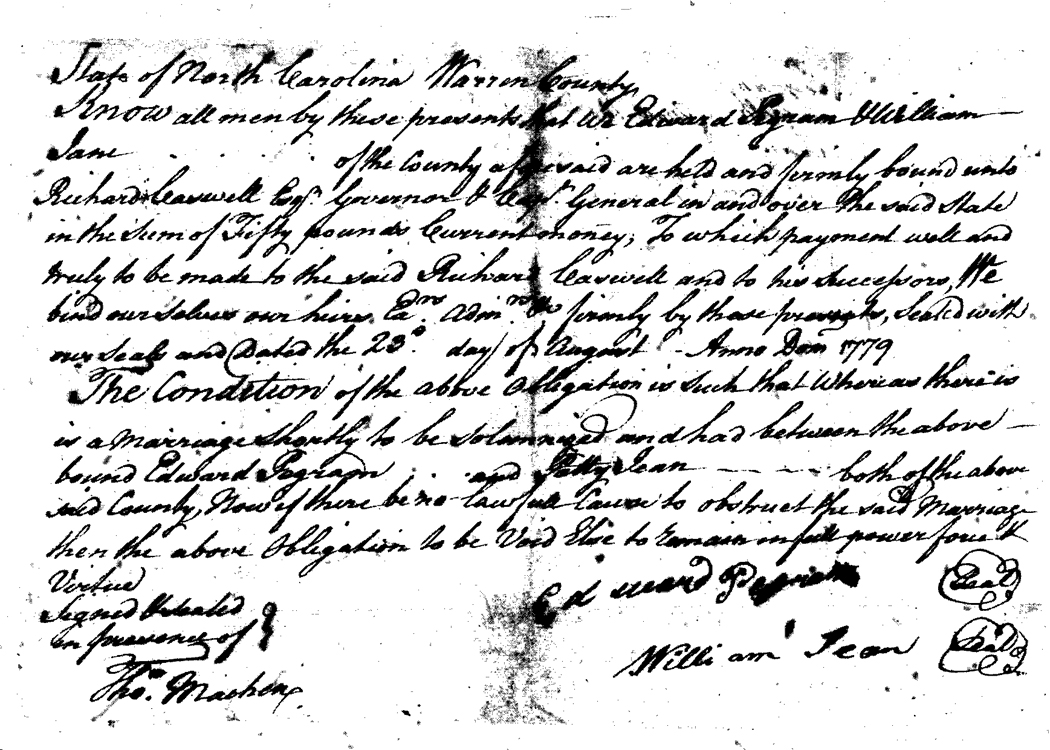 State of North Carolina Warren County
Know all men by these presents that we Edward Pegram & William
Jane of the County aforesaid are held and firmly bound unto
Richard Caswell Esqr. Governor & Capt. General in and over the said State
in the Sum of Fifty pounds Current money, To which payment well and
truly to be made to the said Richard Caswell and to his Successors, We
bind ourselves our heirs Exrs. Admrs. &c firmly by these presents, Sealed with
our Seals and Dated the 23d. day of August - Anno Dom 1779
The Condition of the above Obligation is Such that Whereas there is
is a Marriage Shortly to be Solemnized and had between the above
bound Edward Pegram and Patty Jean both of the above
said County, Now if there be no lawfull Cause to obstruct the said Marriage
then the above Obligation to be Void Else to remain in full power force &
Virtue
Signed & Sealed
in presence of
Edward Pegram Seal
William Jean Seal
Thos. Machen